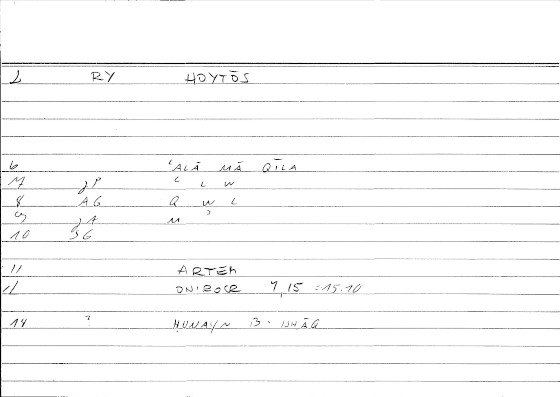 2 RY HOYTŌS
6 ʿALĀ MĀ QĪLA
7 jP ʿ L W
8 AG Q W L
9 jA M ʾ
10 jG
11 ARTEM
12 ONIROCR 7,15 : 15.10
14 ? ḤUNAYN B. ISḤĀQ